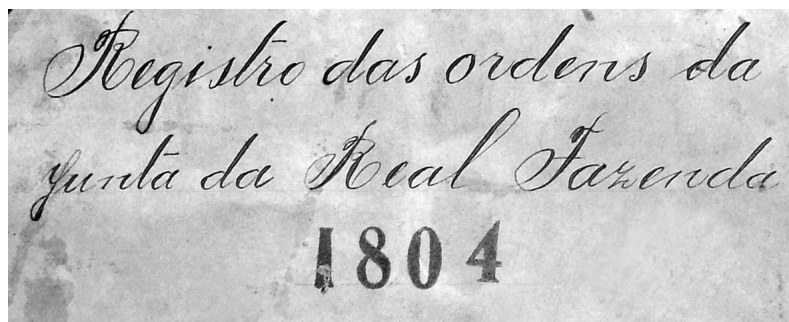 Registro das ordens da
junta da Real Fazenda
1804